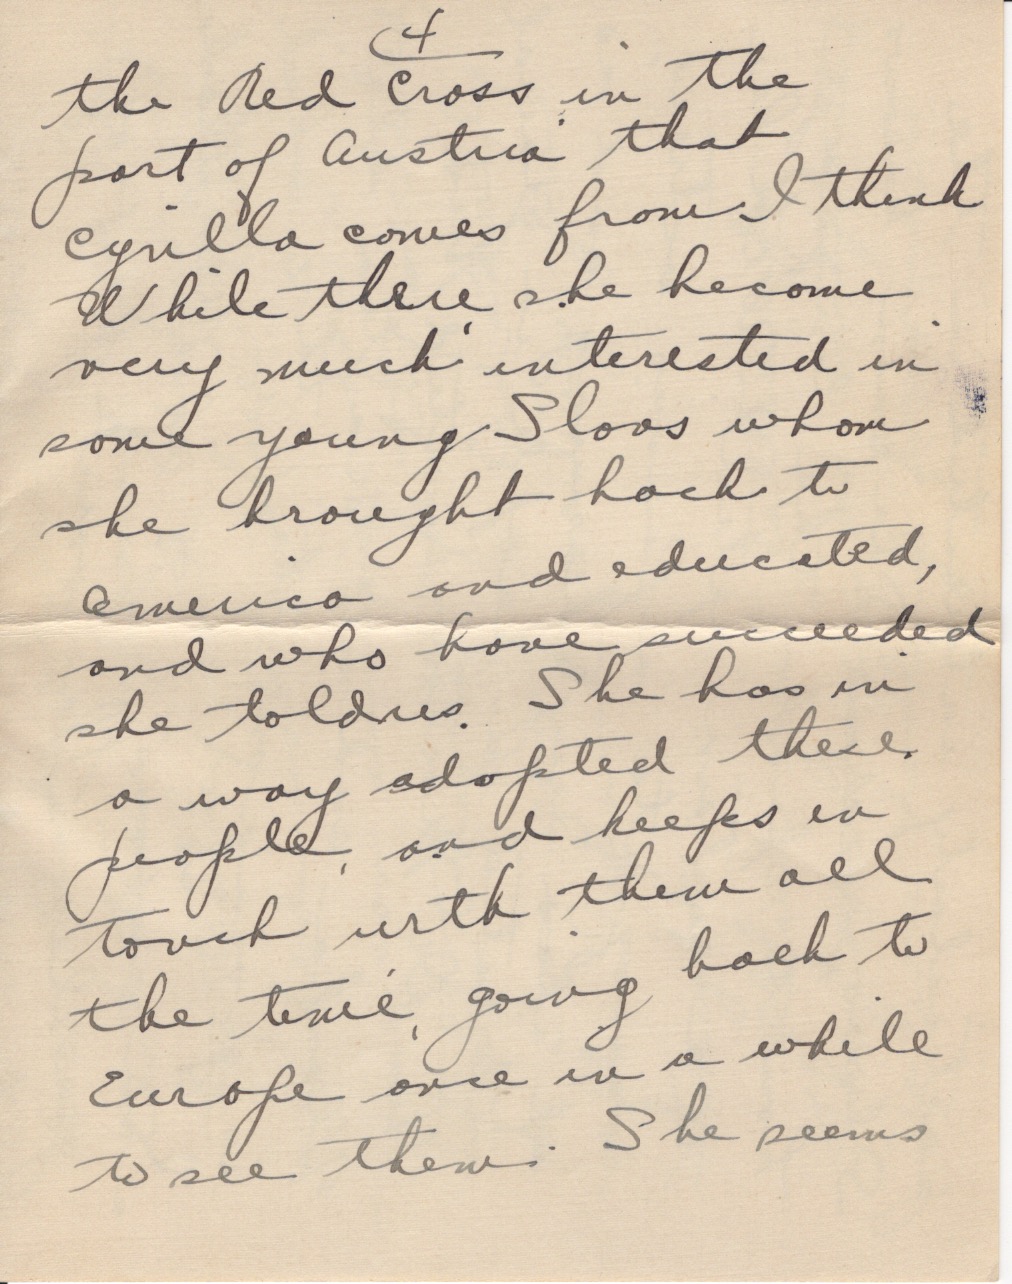 4
the Red Cross in the
part of Austria that
Cyrilla comes from I think
While there she become
very much interested in
some young Slavs whom
she brought back to
America and educated,
and who have succeeded
she told us. She has in
a way adopted these
people, and keeps in
touch with them all
the time, going back to
Europe once in a while
to see them. She seems